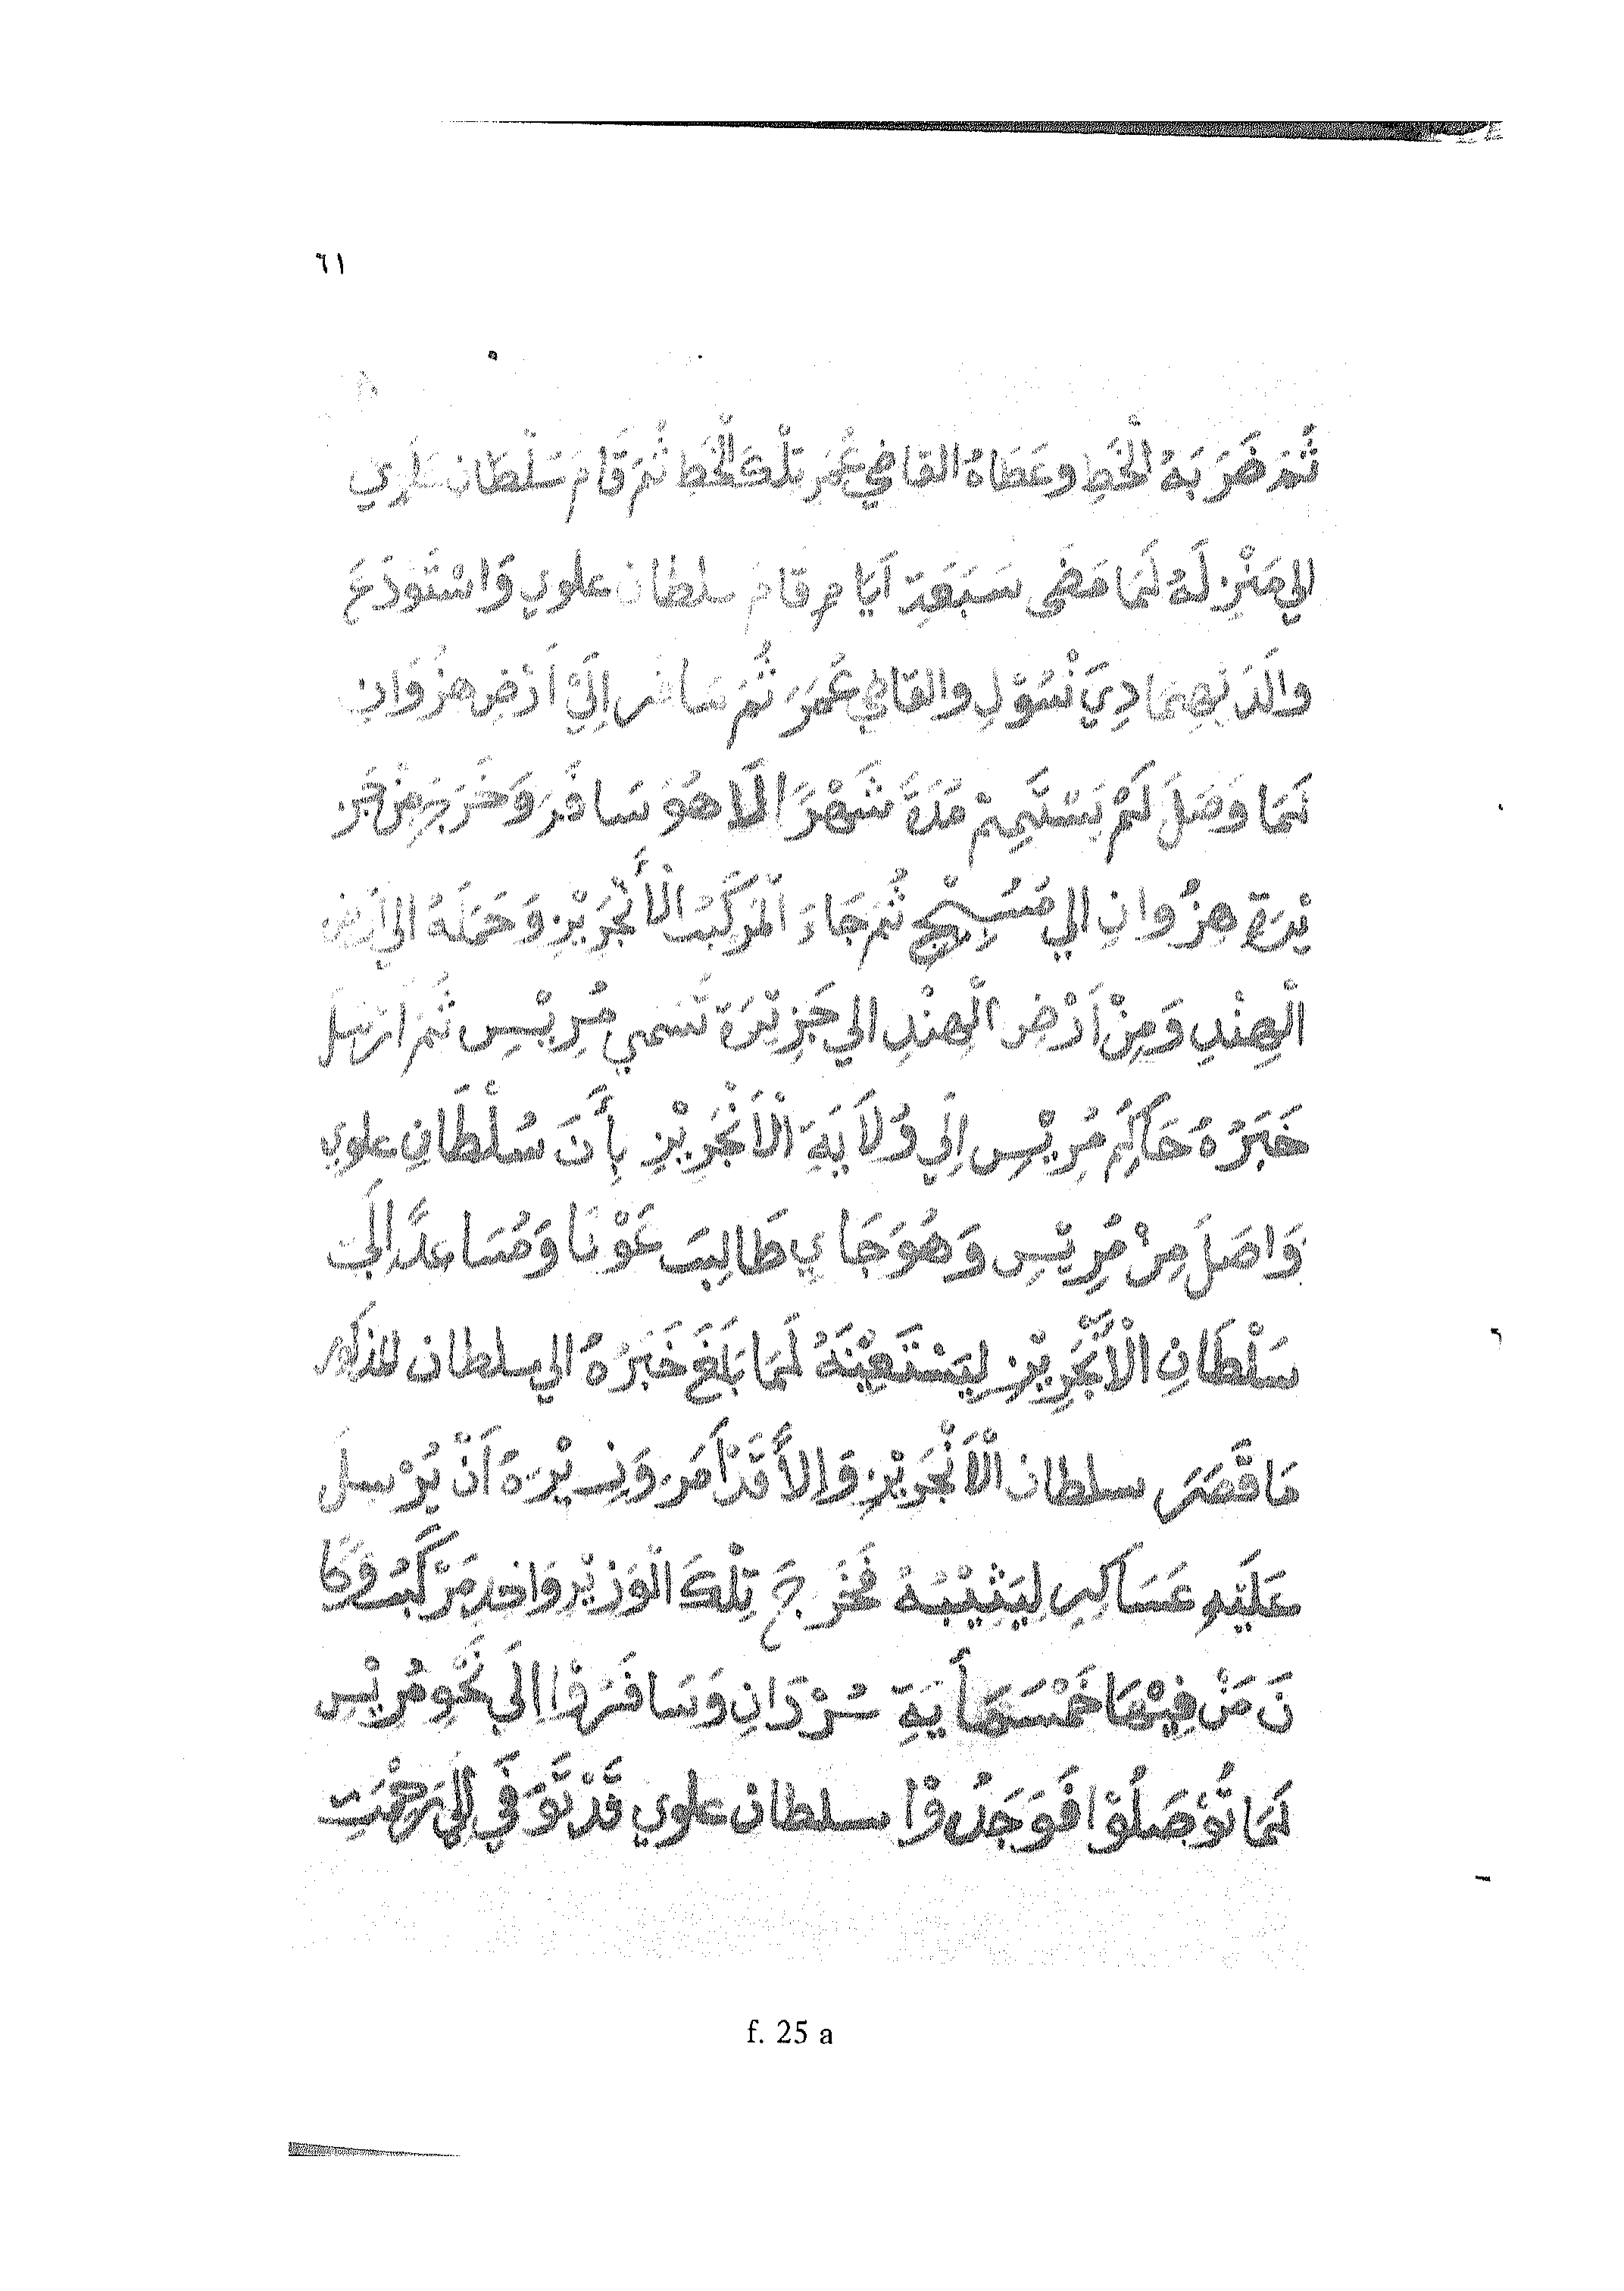 ٦١
ثُمَّ ضَرَبَهُ الْخَطِ وعَطَاهُ القاضِي عُمَر تِلْكَ الْخَطِ ثُمَ قَامَ سَلْطَان عَلوِي
الي مَنْزِلَهُ لَمَا مَضَى سَبَعَة اَيَام قام سلطان علوي وَاسْتَوْدَعَ
والَدَ بِهِمَا دِيَ نْسُوْلِ والقاضِي عُمَرَ ثُمَ سَافر اِلَيْ اَرْضِ هِزُوَانِ
لَمَا وَصَلَ لَمْ يَسْتَقِيمْ مُدَةَ شَهْرًا اِلَا هُوَ سَافَر وَخَرَج مِنْ جَز
يرَة هِزُوانِ الي مُسَبِيْج ثُمَ جَاءَ الْمَرْكَبُ الْأَنْجَرَيْزِ وَحَمَلَهُ الي اَرض
الْهِنْدِ وَمِنْ اَرْضِ الْهِنْدِ الي جَزِيْرَة تَسَمي مُرِيْسِ ثُمَ ارْسَلَ
خَبَرُهُ حَاكِمُ مُرِيْسِ اِلَي وُلَايَةِ الْاَنْجَرِيْزِ بِأَنَ سُلْطَانِ علوي
وَاصَلَ مِنْ مُرِيْسِ وَهُوَ جَاي طَالِبَ عَوْنَا وَمُسَاعدًا اِلَي
سَلْطَانِ الْأَنْجَرِيْزِ لِيَسْتَعِيْنَهُ لَمَا بَلَغَ خَبَرُهُ الي سلطان المذكور
مَا قَصَرَ سلطان الْاَنْجَرَيْزِ وَاِلاَّ قَدْ اَمَر وَزِيْرهُ اَنْ يُرْسِلَ
عَلَيْهِ عَسَاكِر لِيَثِيْبُهُ فَخَرَجَ تِلْكَ الْوَزِيْر وَاحد مَرْكَبُ وَكَا
نَ مَنْ فِيْهَا خَمْسَمَأيَةِ سُرْدَانِ وَسَافَرُوْا اِلَي نَحْوِ مُرِيْسِ
لَمَا تُوَصَلُوْا فَوَجَدُوْا سلطان علوي قَدْ تَّوَفَي اِلَي رَحْمَتِ
f. 25 a